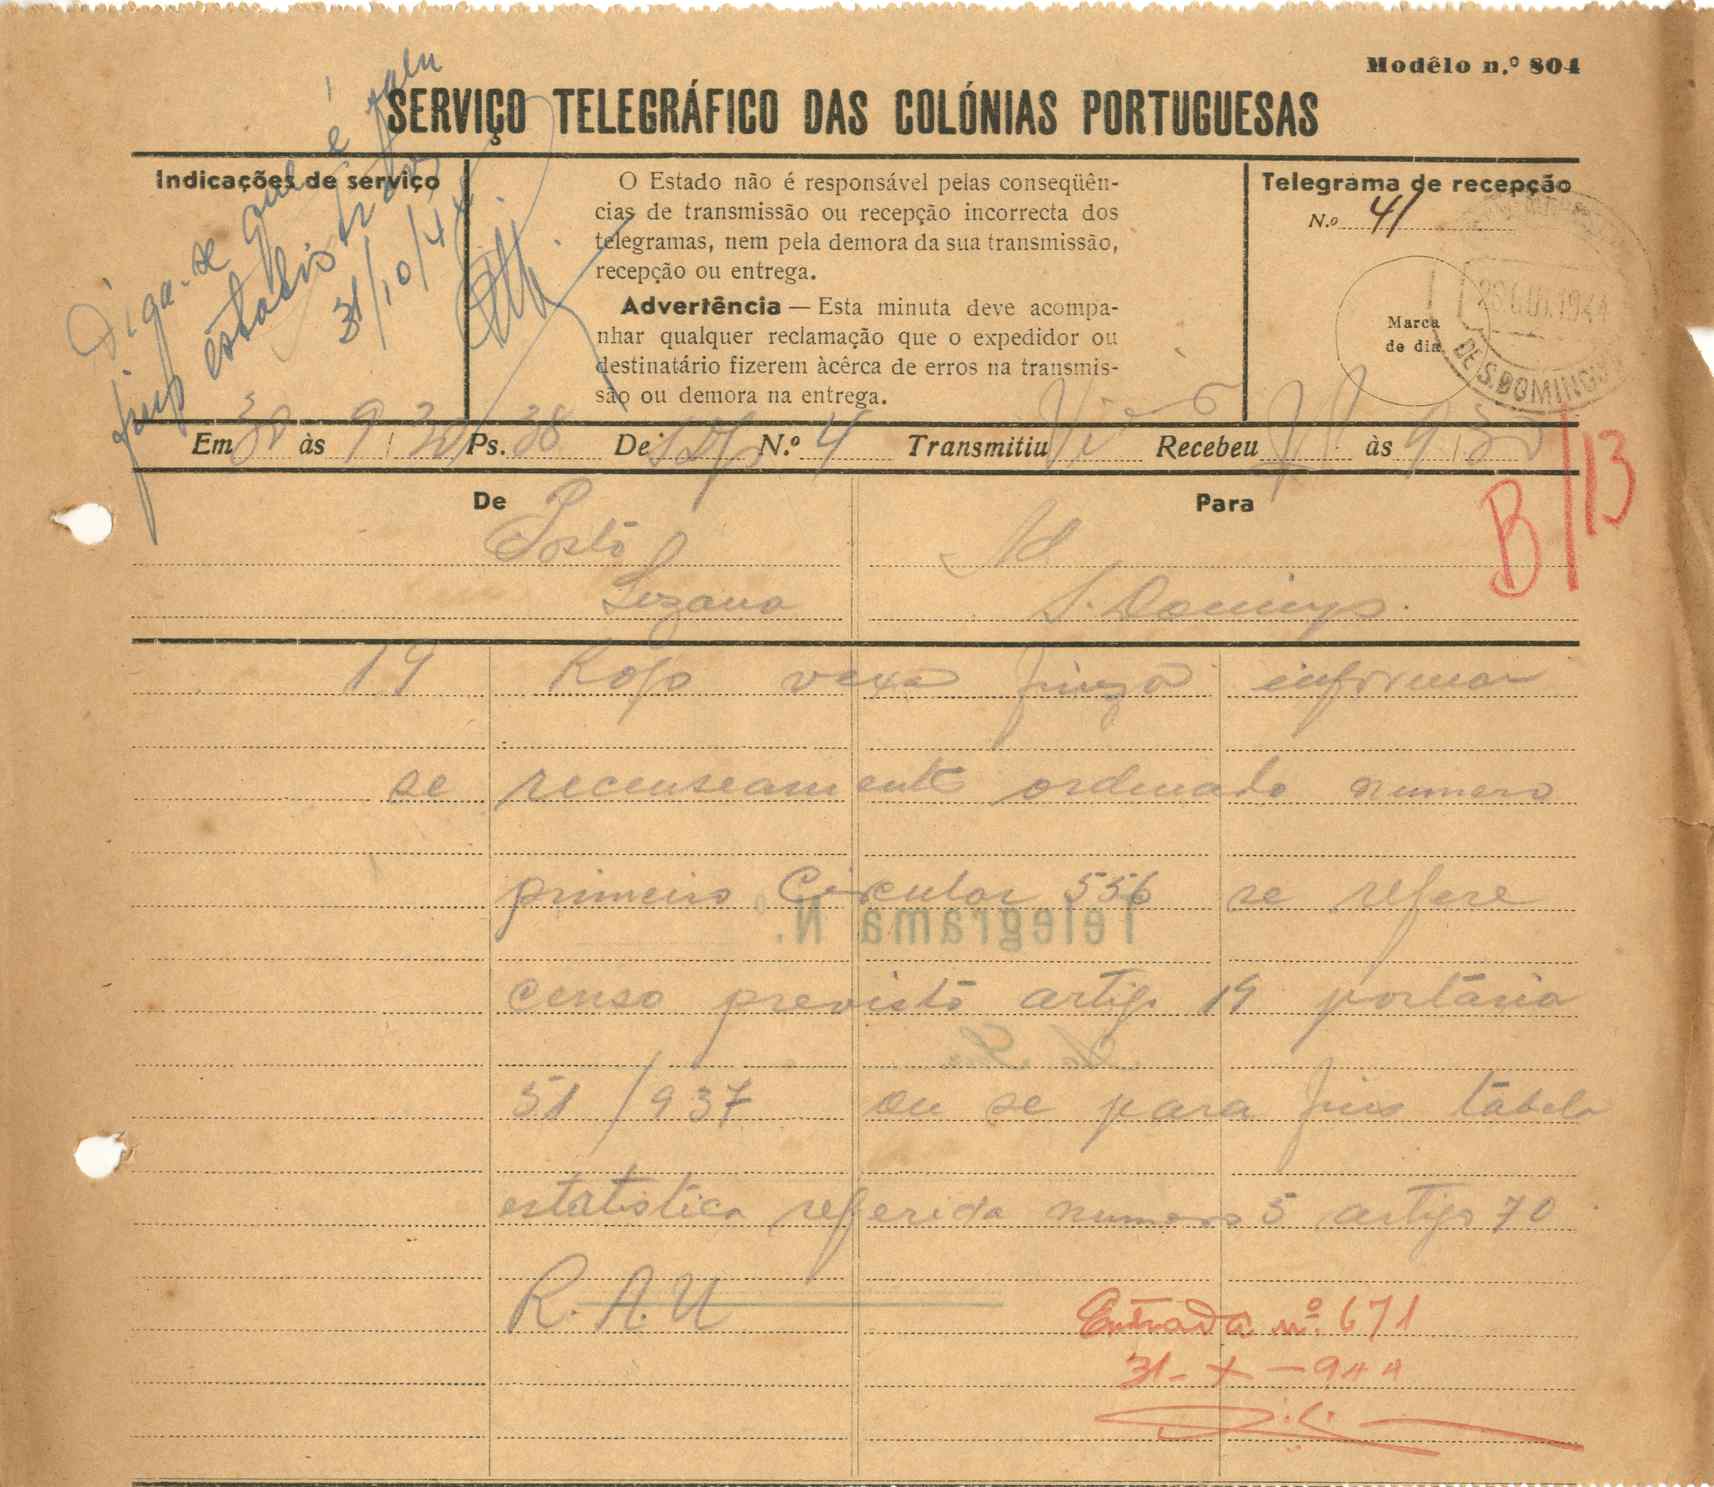 Modêlo n.º 804
SERVIÇO TELEGRÁFICO DAS COLÓNIAS PORTUGUESAS
Indicações de serviço
Diga-se que é para
fins estatisticos
31/10/44
O Estado não é responsável pelas conseqüên-
cias de transmissão ou recepção incorrecta dos
telegramas, nem pela demora da sua transmissão,
recepção ou entrega.
Advertência — Esta minuta deve acompa-
nhar qualquer reclamação que o expedidor ou
destinatário fizerem àcêrca de erros na transmis-
são ou demora na entrega.
Telegrama de recepção
N.º 41
Marca
de dia
1944
DE S. DOMINGOS
Em 30 às 9,30 Ps. 38 De N.º 4 Transmitiu Recebeu às 9,50
B/13
De
Posto
Suzana
Para
Ad
S. Domingos.
19 Rogo vexa fineza informar
se recenseamento ordenado numero
primeiro Circular 556 se refere
Telegrama N.º
censo previsto artigo 19 portaria
51/937 ou se para fins tabela
estatistica referida numero 5 artigo 70
R. A. U
Entrada nº. 671
31-X-944